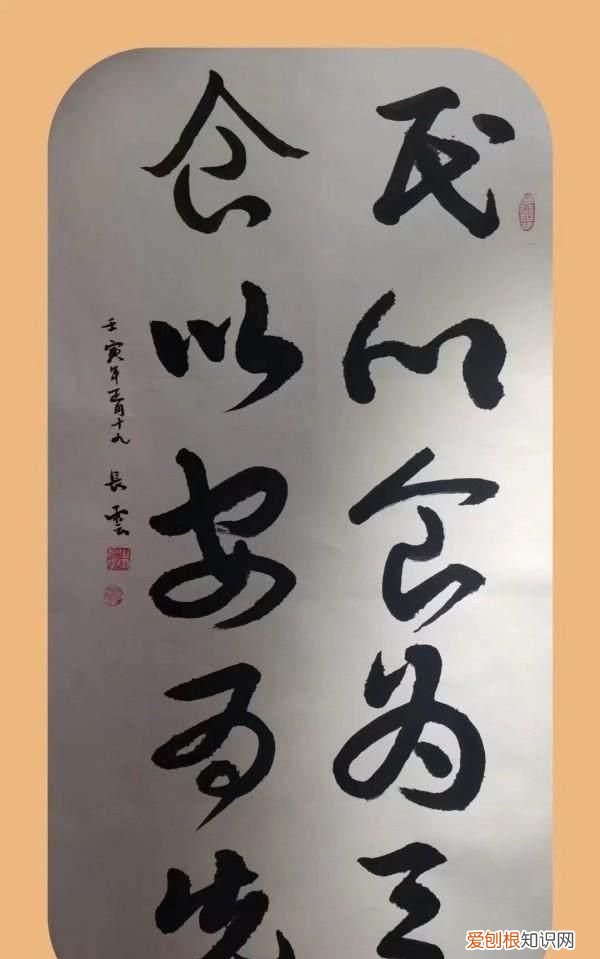 民以食为天
食以安为先
壬寅年正月十九 長雲
爱刨根知识网